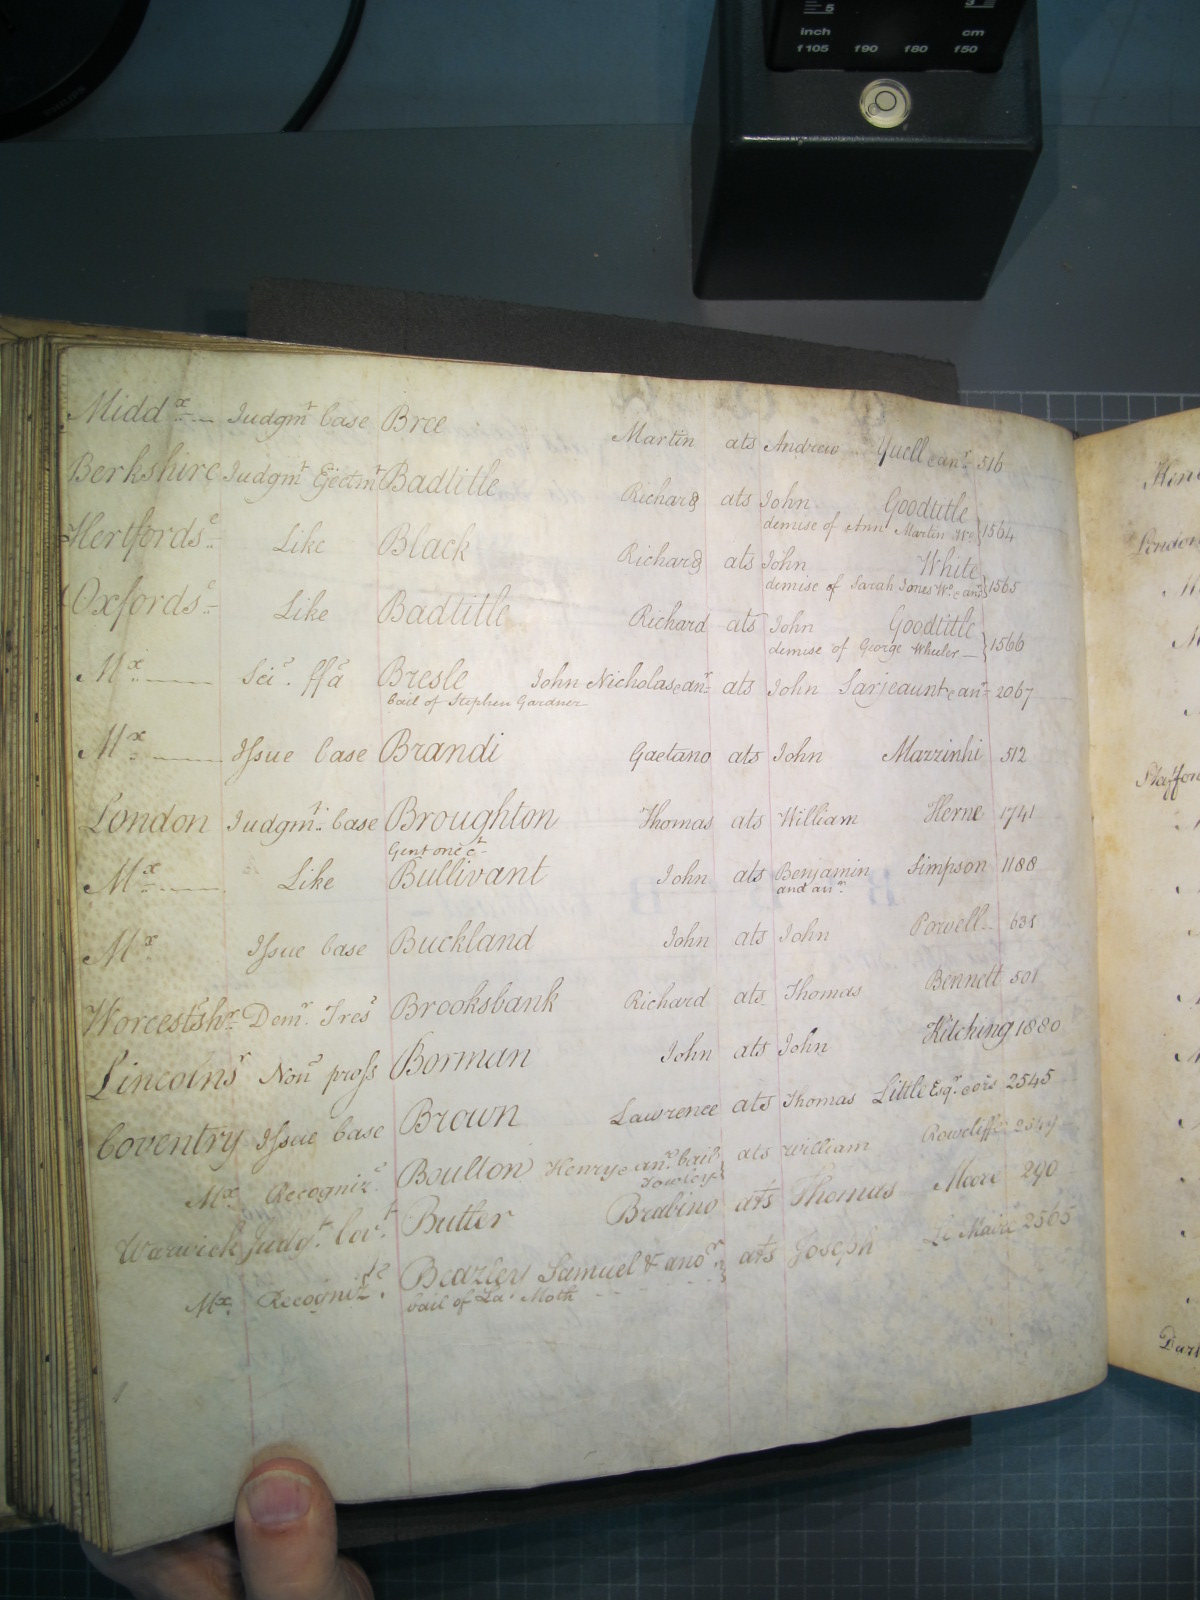 5
inch cm
f105 f90 f80 f50
PHILIPS
Midd^x Judgm^t Case Bree Martin ats Andrew Yuell & an^r 516
Berkshire Judgm^t Ejectm^t Badtitle Richard ats John Goodtitle
demise of Ann Martin W^o 1564
Hertfords^e Like Black Richard ats John White
demise of Sarah Jones W^o & an^r 1565
Oxfords^e Like Badtitle Richard ats John Goodtitle
demise of George Wheeler 1566
M^x Sci^e ffa^s Bresle John Nicholas & an^r ats John Sarjeaunt & an^r 2067
bail of Stephen Gardner
M^x Issue Case Brandi Gaetano ats John Mazzinhi 512
London Judgm^t Case Broughton Thomas ats William Herne 1741
Gent one &c^t
M^x Like Bullivant John ats Benjamin Simpson 1188
and an^r
M^x Issue Case Buckland John ats John Powell 635
Worcestsh^r Dem^r Tres^s Brooksbank Richard ats Thomas Bennett 501
Lincolns^r Non pross Borman John ats John Kitching 1880
Coventry Issue Case Brown Lawrence ats Thomas Little Esq^r & ors 2545
M^x Recogniz^e Boulton Henry & an^r bail ats William Rowcliffe 2549
Warwick Judg^t Cov^t Butler Brabino ats Thomas Moore 290
M^x Recogniz^e Beazley Samuel & ano^r ats Joseph Le Maire 2565
bail of La Moth
London